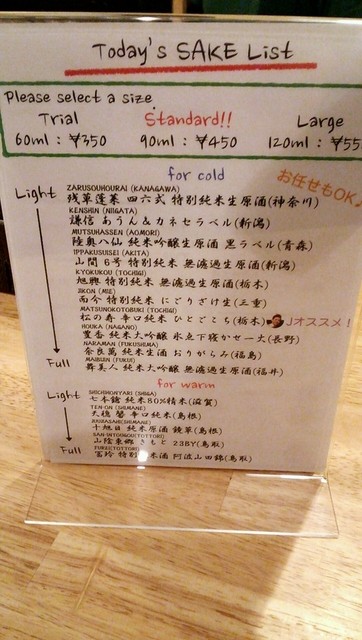 Today's SAKE List
Please select a size.
Trial Standard!! Large
60ml : ¥350 90ml : ¥450 120ml : ¥55
for cold
お任せもOK♪
Light
ZARUSOUHOURAI (KANAGAWA)
残草蓬莱 四六式 特別純米生原酒(神奈川)
KENSHIN (NIIGATA)
謙信 あうん&カネセラベル(新潟)
MUTSUHASSEN (AOMORI)
陸奥八仙 純米吟醸生原酒 黒ラベル(青森)
IPPAKUSUISEI (AKITA)
山間 6号 特別純米 無濾過生原酒(新潟)
KYOKUKOU (TOCHIGI)
旭興 特別純米 無濾過生原酒(栃木)
JIKON (MIE)
而今 特別純米 にごりざけ生(三重)
MATSUNOKOTOBUKI (TOCHIGI)
松の寿 辛口純米 ひとごこち(栃木) Jオススメ!
HOUKA (NAGANO)
豊香 純米大吟醸 氷点下寝かせ一火(長野)
NARAMAN (FUKUSHIMA)
奈良萬 純米生酒 おりがらみ(福島)
MAIBIJIN (FUKUI)
舞美人 純米大吟醸 無濾過生原酒(福井)
Full
for warm
Light
SHICHIHONYARI (SHIGA)
七本鎗 純米80%精米(滋賀)
TEN-ON (SHIMANE)
天穏 馨 辛口純米(島根)
JUUJIASAHI (SHIMANE)
十旭日 純米原酒 (島根)
SAN-INTOUGOU (TOTTORI)
山陰東郷 きもと 23BY(鳥取)
FUREI (TOTTORI)
冨玲 特別純米酒 阿波山田錦(鳥取)
Full